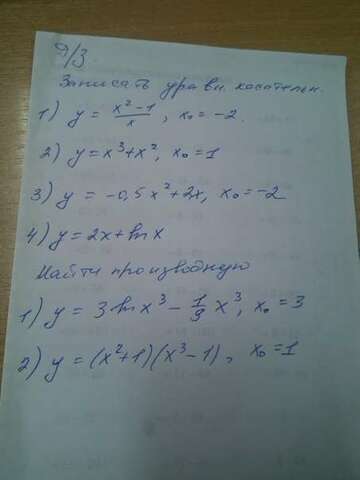 Д/З
Записать уравн. касательн.
1) y = x²-1/x, x₀ = -2.
2) y = x³+x², x₀ = 1
3) y = -0,5x²+2x, x₀ = -2
4) y = 2x + ln x
Найти производную
1) y = 3 ln x³ - 1/9 x³, x₀ = 3
2) y = (x²+1)(x³-1), x₀ = 1